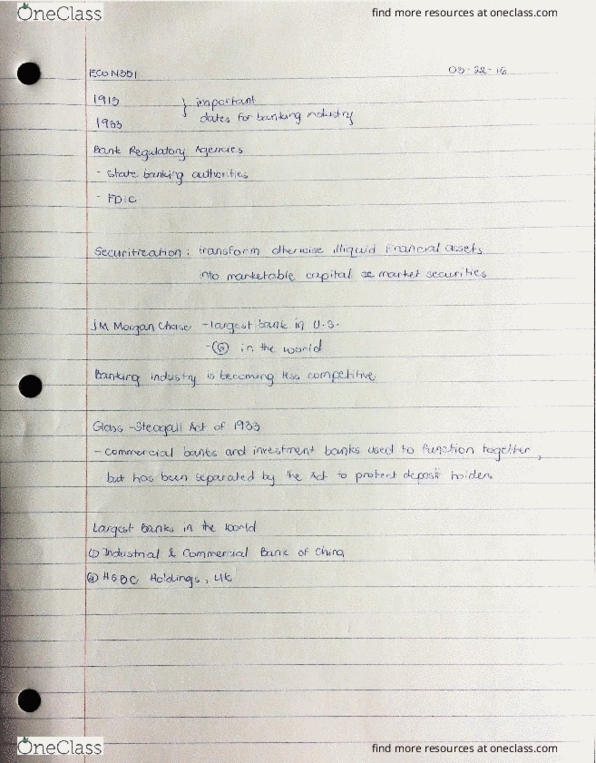 OneClass
find more resources at oneclass.com
ECON301
03-22-16
1913
1933
} important
dates for banking industry
Bank Regulatory Agencies
- State banking authorities
- FDIC
Securitization : transform otherwise illiquid financial assets
into marketable capital market securities
JM Morgan Chase -largest bank in U.S.
-⑥ in the world
Banking industry is becoming less competitive
Glass -Steagall Act of 1933
- commercial banks and investment banks used to function together,
but has been separated by the Act to protect deposit holders
Largest Banks in the World
① Industrial & Commercial Bank of China
② HSBC Holdings, UK
OneClass
find more resources at oneclass.com